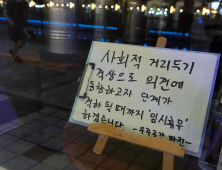 사회적 거리두기
격상으로 의견에
동참하고자 단계가
하 될 때까지 '임시휴무'
하겠습니다